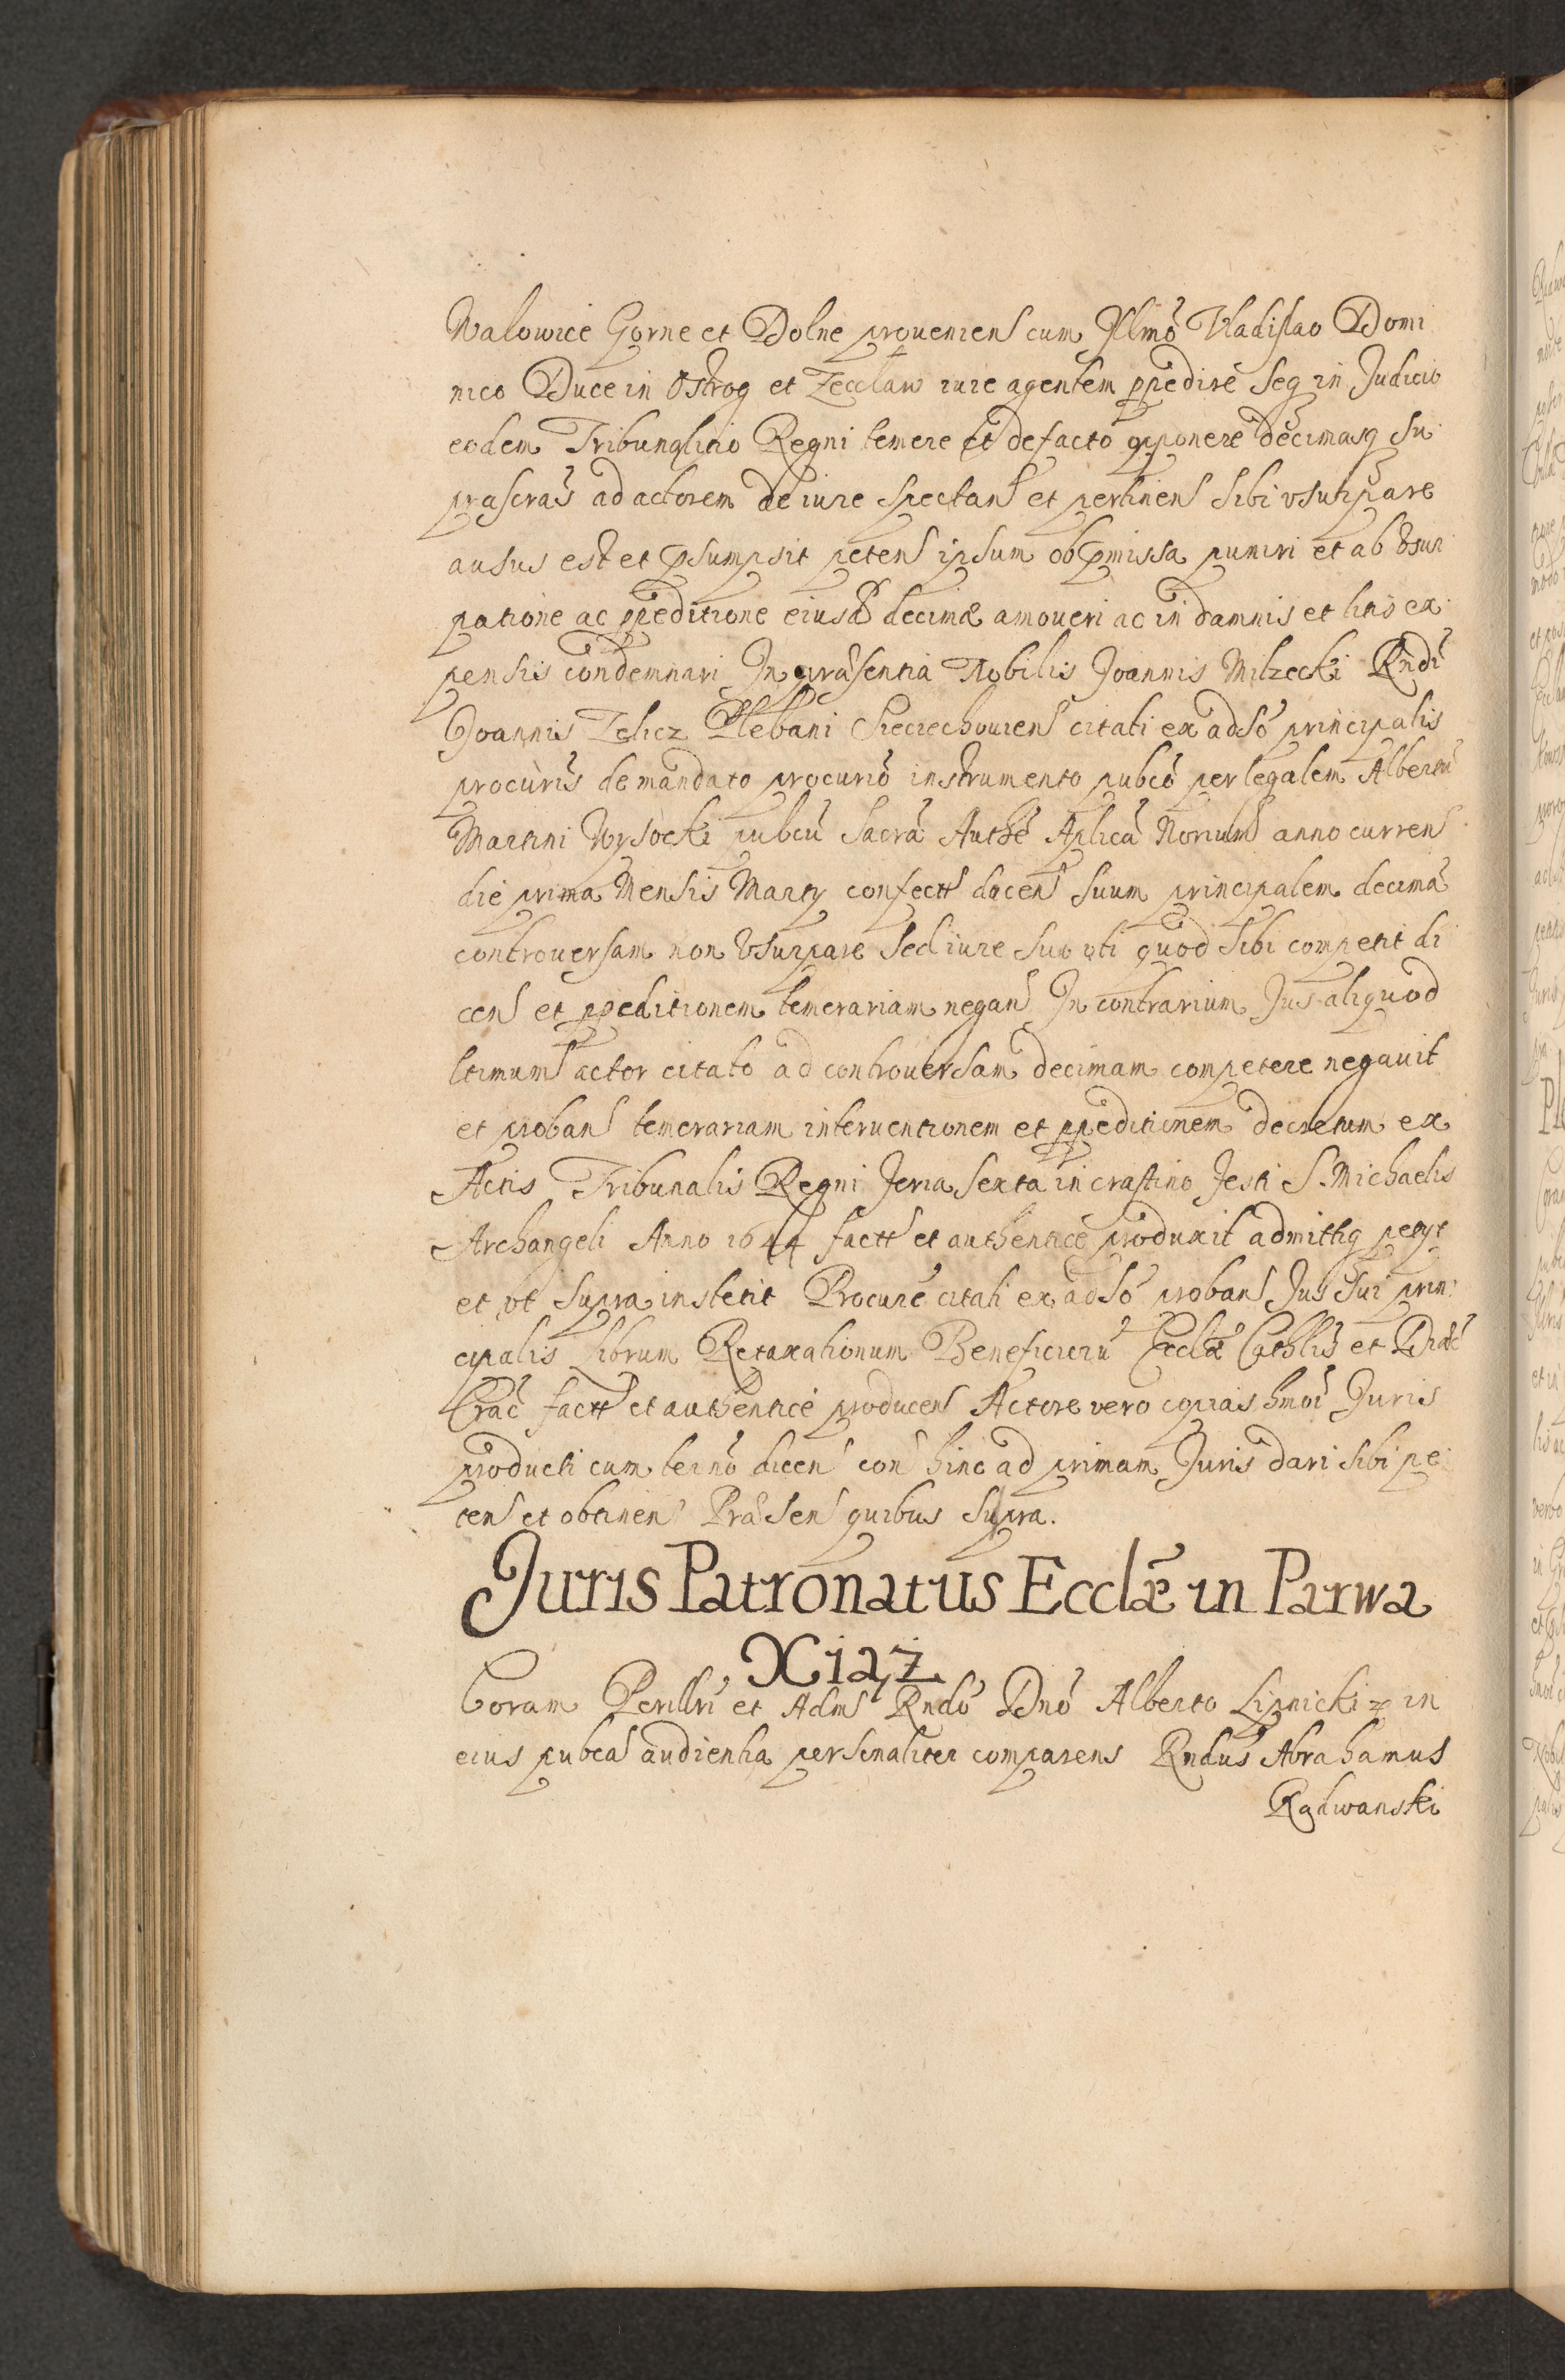 Walowice Gorne et Dolne proueniens cum Jllmo Vladislao Domi
nico Duce in Ostrog et Zecław iure agentem ppedire seq in Judicio
eodem Tribunalitio Regni temere et de facto opponere decimasq su
prascras ad actorem de iure spectans et pertinens sibi vsurpare
ausus est et psumpsit petens ipsum ob pmissa puniri et ab vsur
patione ac ppeditione eiusd decimæ amoueri ac in damnis et litis ex
pensis condemnari Jn præsentia Nobilis Joannis Milzecki Rndi
Joannis Plebani Sieciechouiens citati ex adso principalis
procuris de mandato procurio instrumento pubco per legalem Albertu
Martini Wysocki pubcu Sacra Authe Aplica Norium anno currens
die prima Mensis Marty confectt docens suum principalem decima
controuersam non vsurpare sed iure suo vti quod sibi competit di
cens et ppeditionem temerariam negans Jn contrarium Jus aliquod
ltimum actor citato ad controuersam decimam competere negauit
et probans temerariam interuentionem et ppeditionem decretum ex
Actis Tribunalis Regni feria sexta in crastino festi S. Michaelis
Archangeli Anno 1644 factt et authentice produxit admittiq petyt
et vt supra institit Procure citati ex adso probans Jus sui prin
cipalis Librum Retaxationum Beneficioru Ecclæ Cathlis et Diæc
Crac factt et authentice producens Actore vero copias hmoi Juris
producti cum termo dicen con hinc ad primam Juris dari sibi pe
tens et obtinens Præsen quibus supra.
Juris Patronatus Ecclæ in Parwa
Xiąż
Coram Perillri et Adm Rndo Dno Alberto Lipnicki in
eius pubca audientia personaliter comparens Rndus Abrahamus
Radwanski